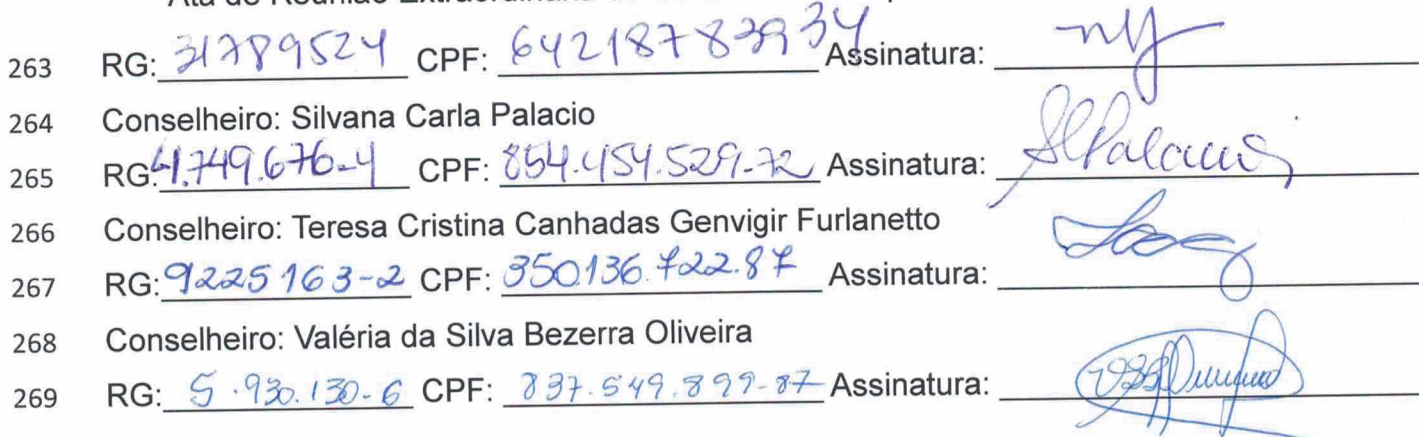 263 RG: 31789524 CPF: 64218783934 Assinatura:
264 Conselheiro: Silvana Carla Palacio
265 RG: 4.749.676-4 CPF: 854.454.529-72 Assinatura: SCPalacio
266 Conselheiro: Teresa Cristina Canhadas Genvigir Furlanetto
267 RG: 9225163-2 CPF: 350136.722.87 Assinatura:
268 Conselheiro: Valéria da Silva Bezerra Oliveira
269 RG: 5.930.130-6 CPF: 837.549.899-87 Assinatura: